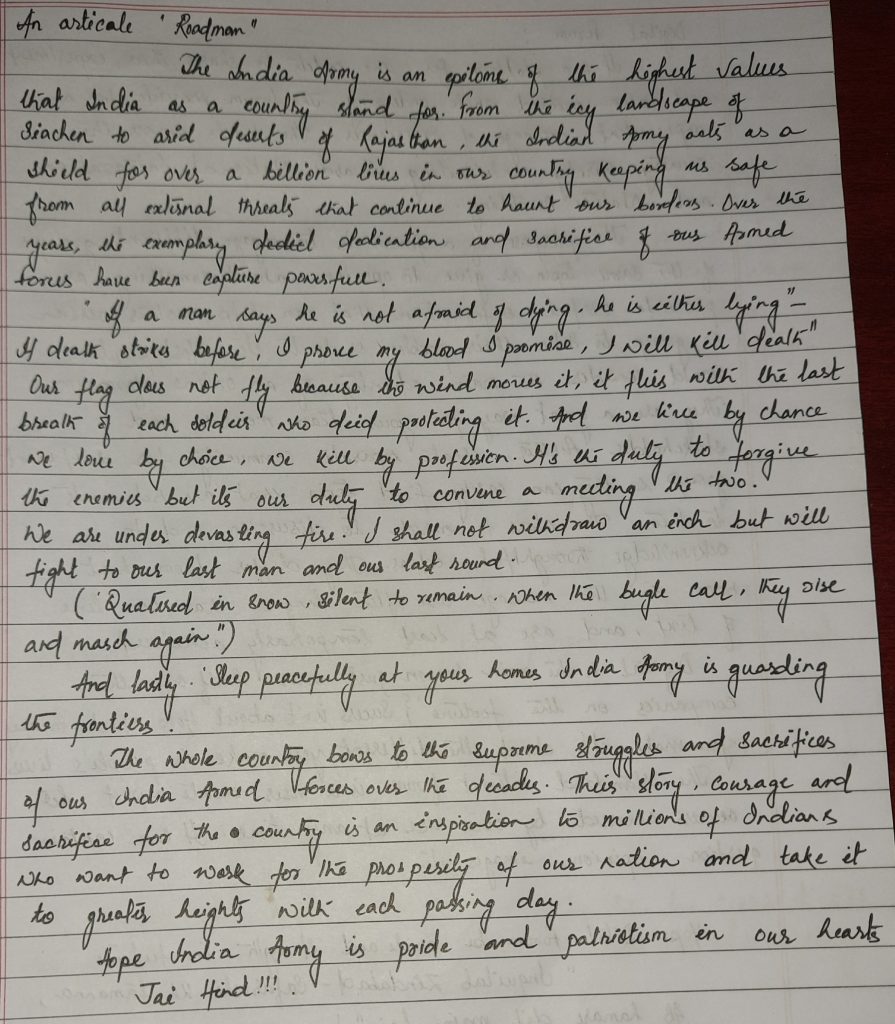 An articale "Roadman"
The India Army is an epitome of the highest values
that India as a country stand for. From the icy landscape of
Siachen to arid deserts of Rajasthan, the Indian Army acts as a
shield for over a billion lives in our country keeping us safe
from all external threats that continue to haunt our borders. Over the
years, the exemplary dedication and sacrifice of our Armed
forces have been capture powerfull.
"If a man says he is not afraid of dying, he is either lying"-
If death strikes before, I prove my blood I promise, I will kill death"
Our flag does not fly because the wind moves it, it flies with the last
breath of each soldeir who deid protecting it. And we live by chance
we love by choice, we kill by profession. It's the duty to forgive
the enemies but it's our duty to convene a meeting the two.
We are under devasting fire. I shall not withdraw an inch but will
fight to our last man and our last round.
("Quatured in snow, silent to remain. when the bugle call, they rise
and march again.")
And lastly. 'Sleep peacefully at your homes India Army is guarding
the frontiers.
The whole country bows to the supreme struggles and sacrifices
of our India Armed forces over the decades. Their story, courage and
sacrifice for the country is an inspiration to millions of Indians
who want to work for the prosperity of our nation and take it
to greater heights with each passing day.
Hope India Army is pride and patriotism in our hearts
Jai Hind!!!